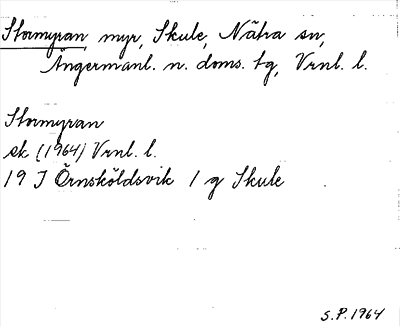 Stormyran myr, Skule, Nätra sn,
Ångermanl. n. doms. tg, Vrnl. l.
Stormyran
ek (1964) Vrnl. l.
19 J Örnsköldsvik 1 g Skule
S.P. 1964